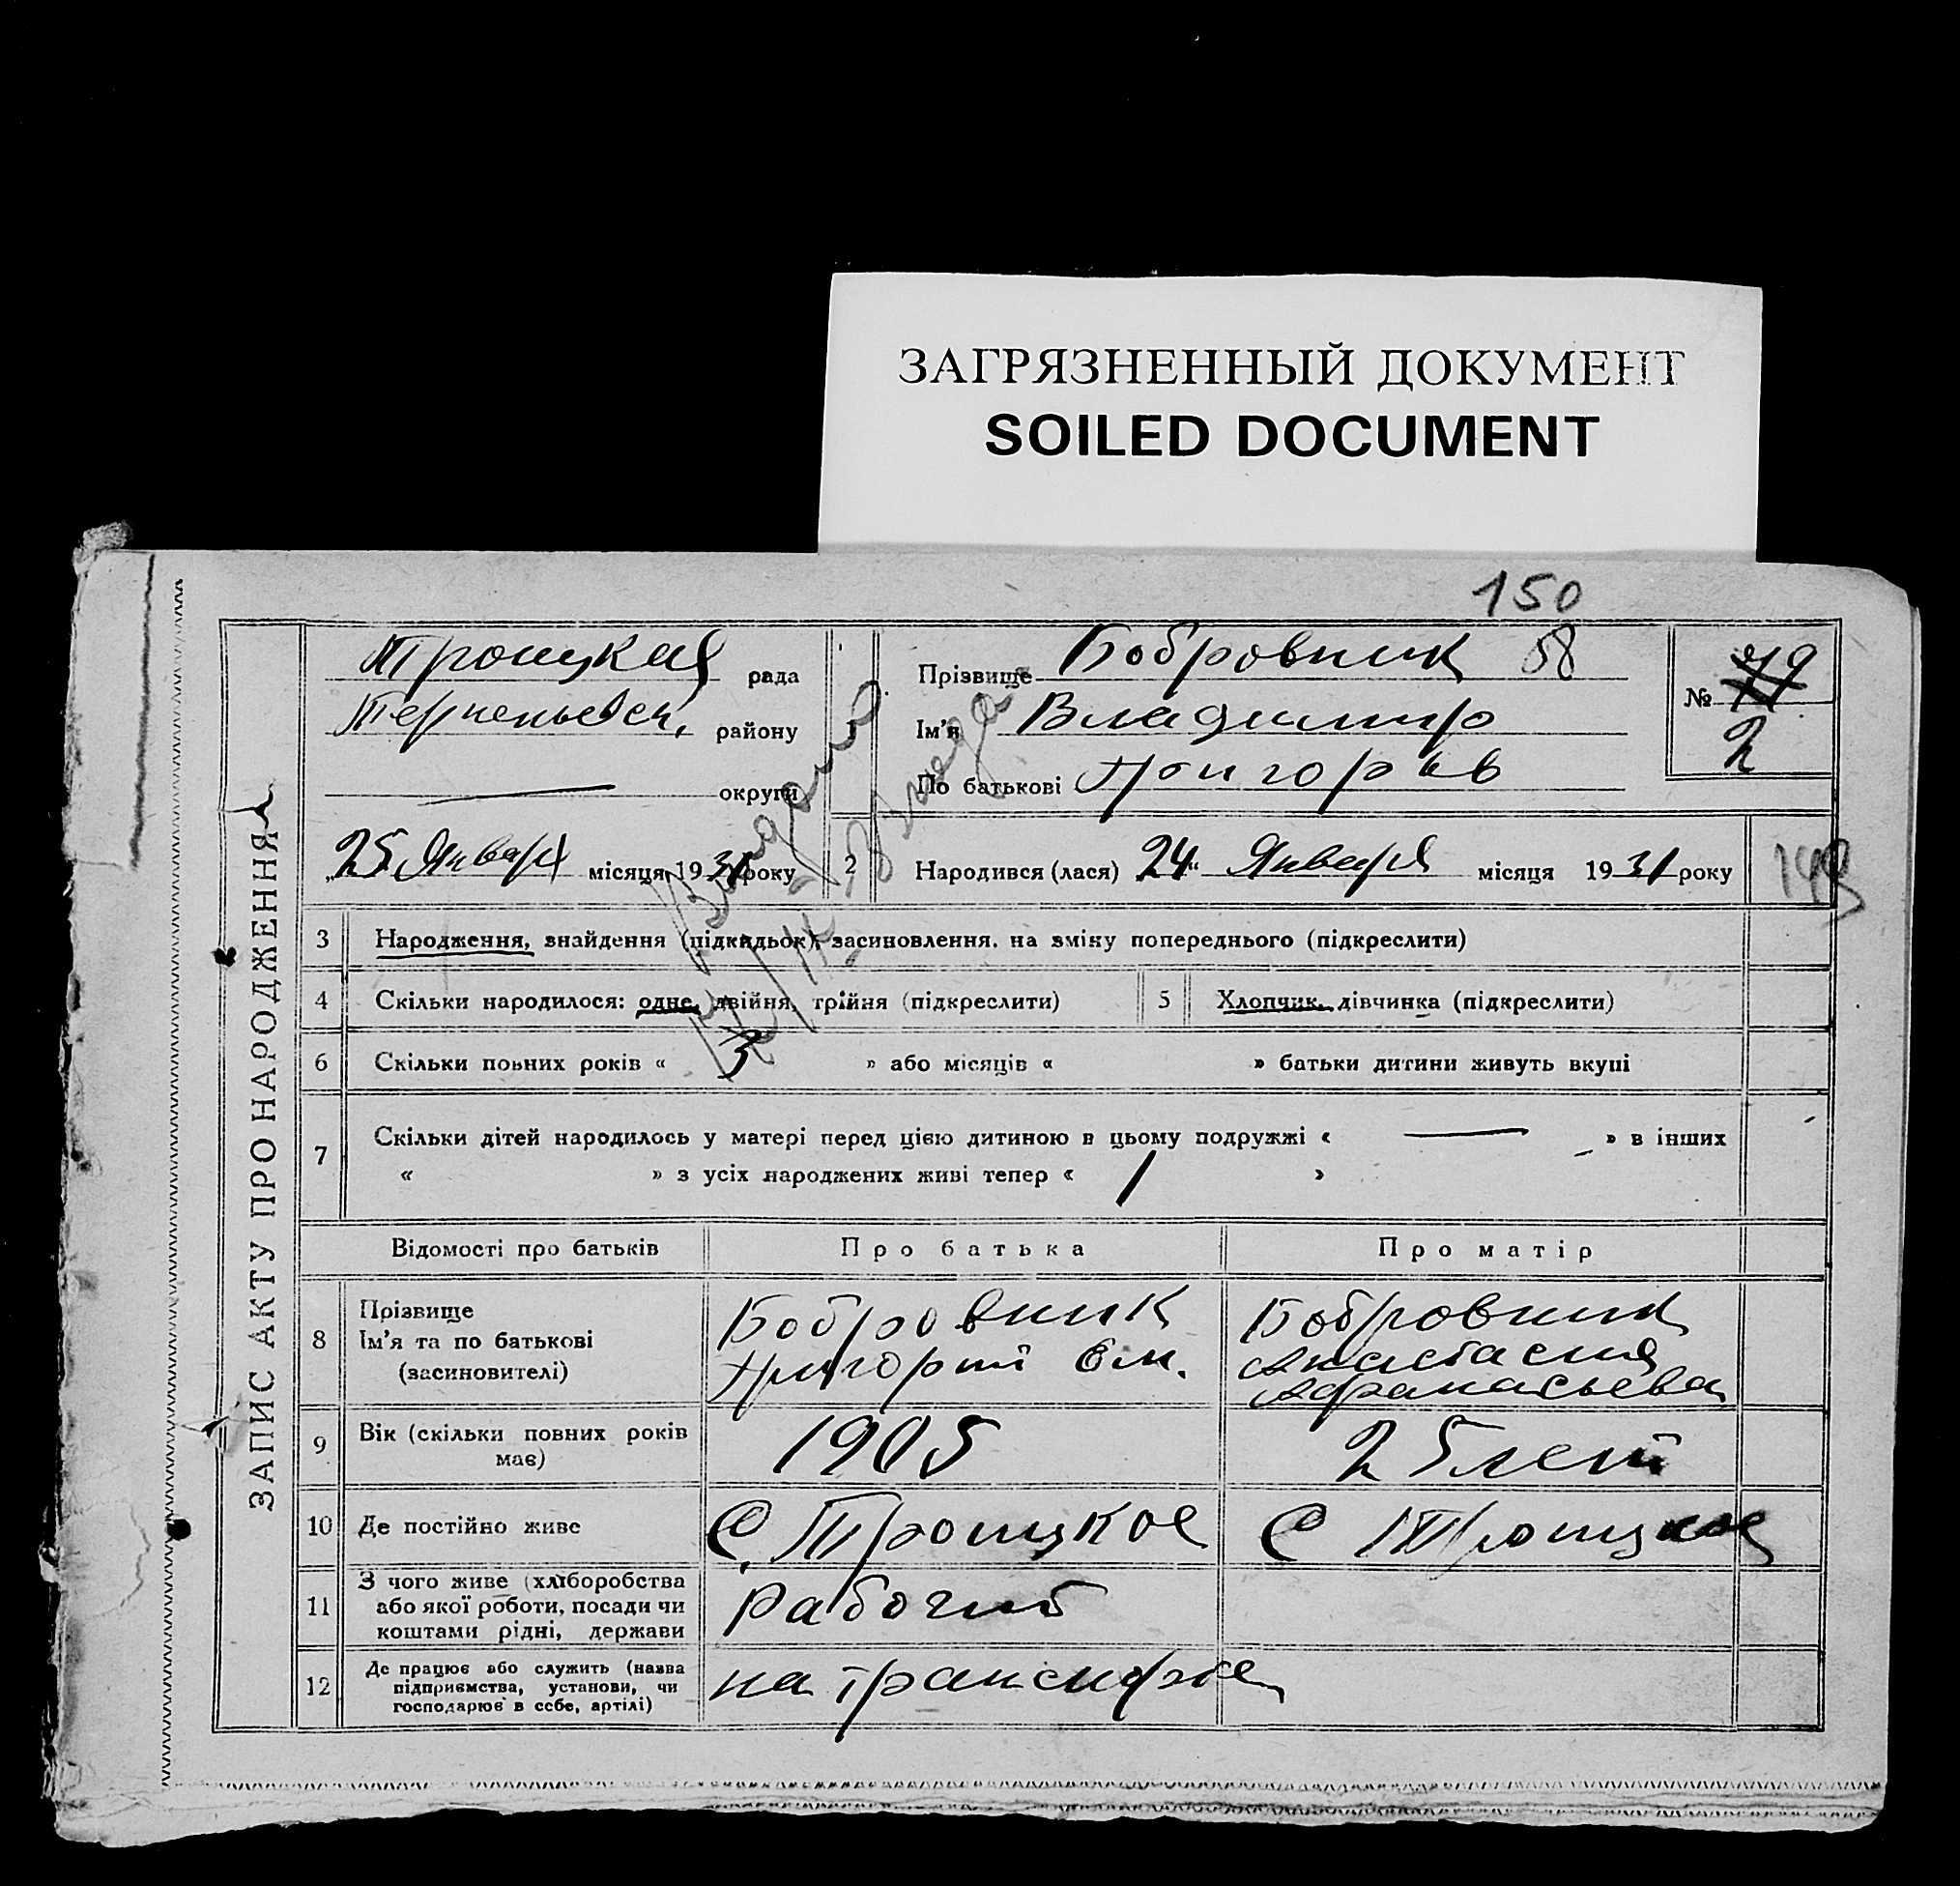 ЗАГРЯЗНЕННЫЙ ДОКУМЕНТ
SOILED DOCUMENT
150
ЗАПИС АКТУ ПРО НАРОДЖЕННЯ
Троицкая рада
району
округи
25 Январ місяця 1931 року
1
Прізвище Бобровник 58
Ім'я Владимир
По батькові Григорьев
№ 79
2
2 Народився (лася) 24 „ Января місяця 1931 року
149
3 Народження, знайдення (підкидьок), засиновлення, на зміну попереднього (підкреслити)
4 Скільки народилося: одне, двійня, трійня (підкреслити) 5 Хлопчик, дівчинка (підкреслити)
6 Скільки повних років « 3 » або місяців « » батьки дитини живуть вкупі
7 Скільки дітей народилось у матері перед цією дитиною в цьому подружжі « — » в інших
« » з усіх народжених живі тепер « 1 »
Відомості про батьків Про батька Про матір
8 Прізвище Ім'я та по батькові (засиновителі)
Бобровник
Григорий Ем.
Бобровник
Анастасия
Афанасьева
9 Вік (скільки повних років має) 1905 25 лет
10 Де постійно живе С. Троицкое С Троицкое
11 З чого живе (хліборобства або якої роботи, посади чи коштами рідні, держави Рабочий
12 Де працює або служить (назва підприємства, установи, чи господарює в себе, артілі)